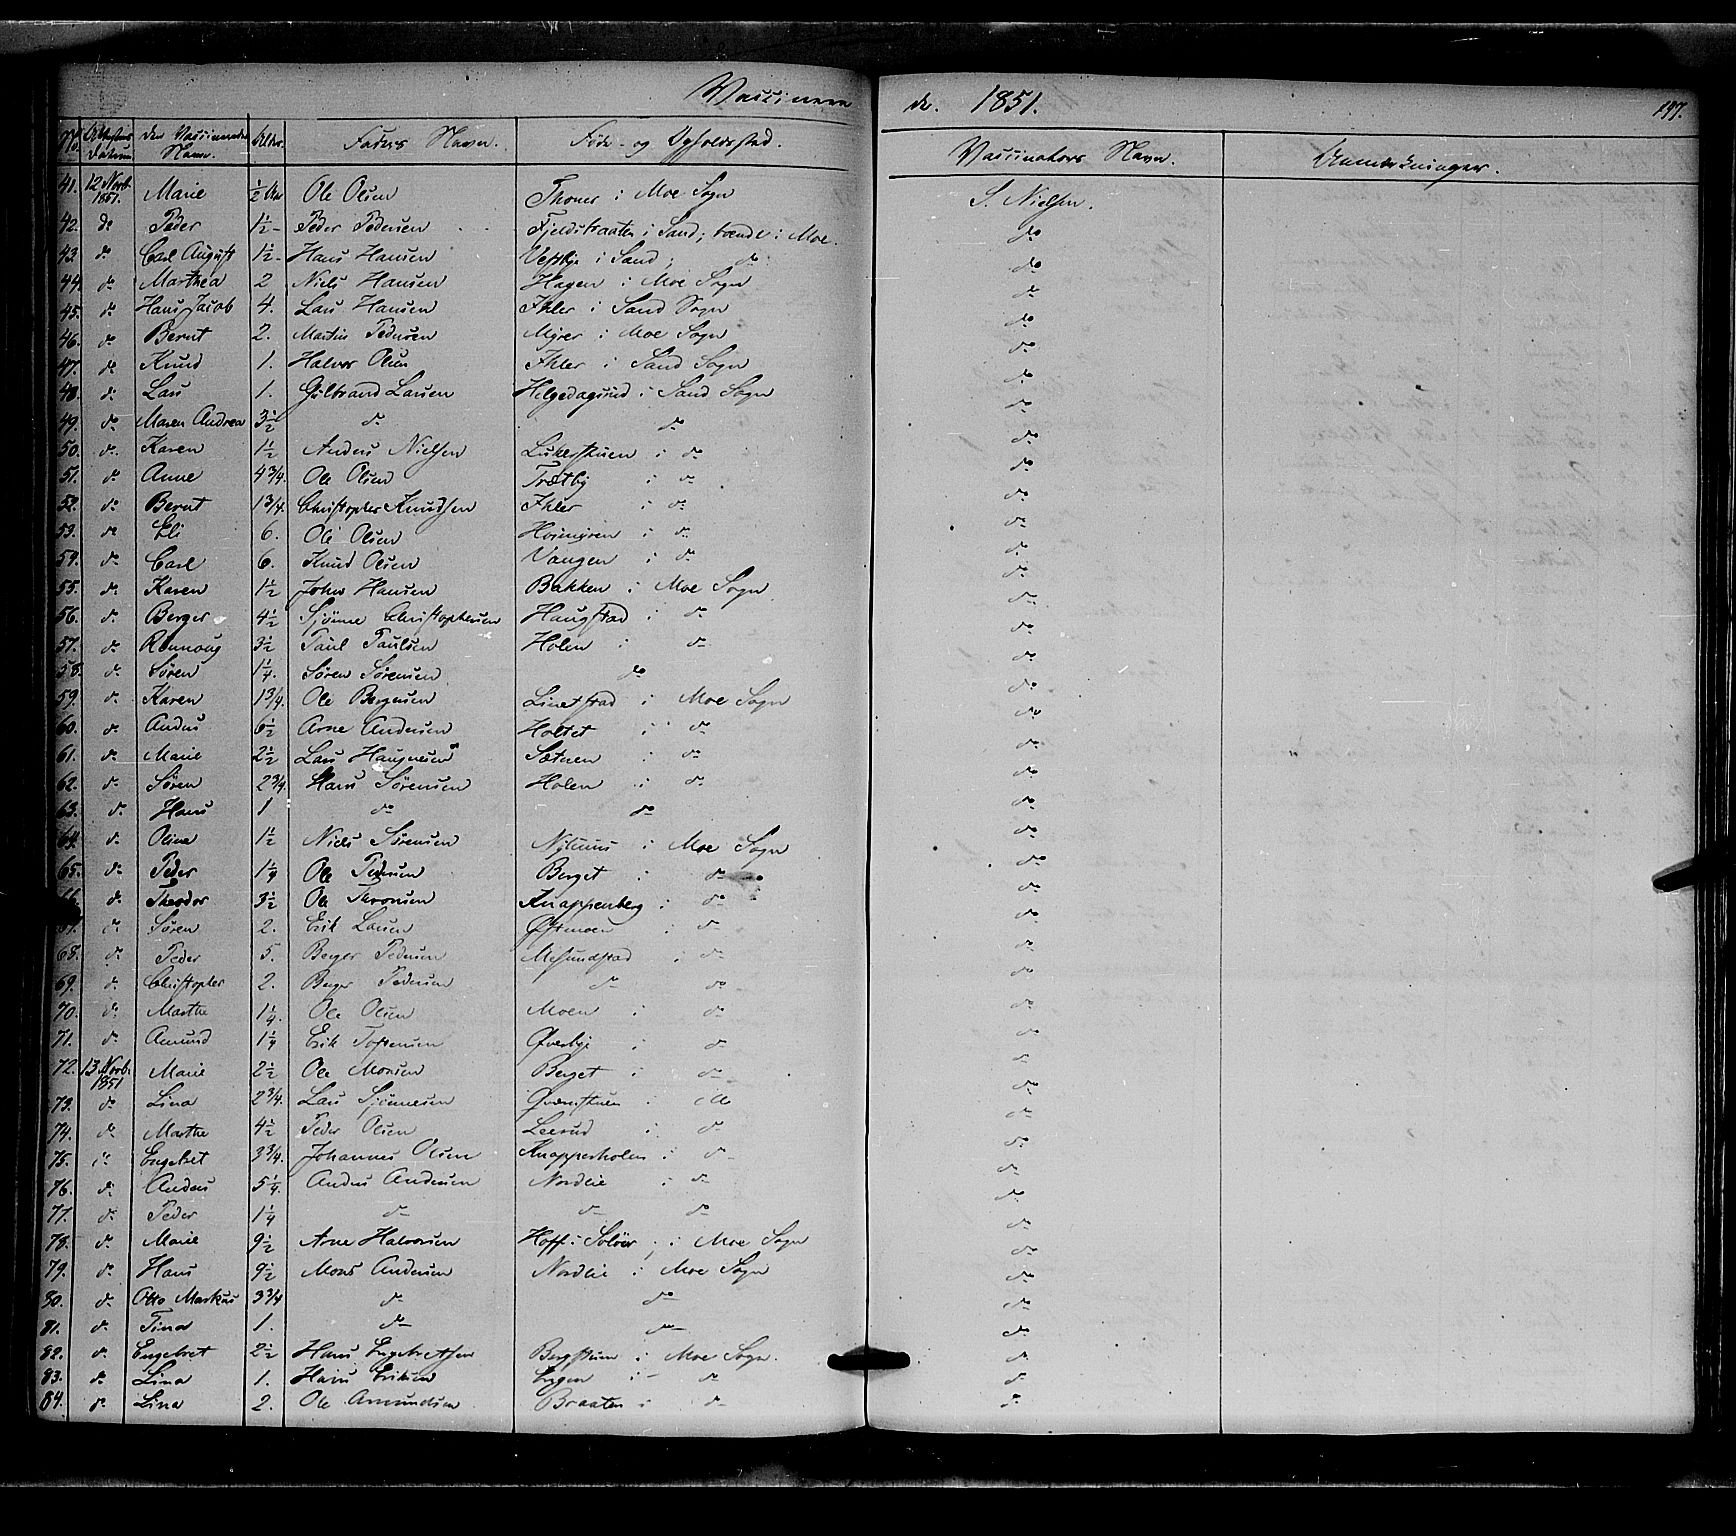 Vaccinere de. 1851. 197.
No. Attestens Datum den Vaccineredes Navn. Alder. Faders Navn. Føde- og Opholdssted. Vaccinators Navn. Anmerkninger.
41. 12 Novb. 1851. Marie ½ Aar Ole Olsen Thoner i Moe Sogn S. Nielsen.
42. do Peder 1½ - Peder Pedersen Fjeldsraaten i Sand; boende i Moe. do
43. do Carl August 1½ - Hans Hansen Vestbye i Sand; do do
44. do Marthea 2 Niels Hansen Hagen i Moe Sogn do
45. do Hans Jacob 4. Lars Hansen Ihler i Sand Sogn do
46. do Bernt 2. Martin Pedersen Myrer i Moe Sogn do
47. do Knud 1. Halvor Olsen Ihler i Sand Sogn do
48. do Lars 1. Gulbrand Larsen Helgedagsrud i Sand Sogn do
49. do Maren Andrea 3½ do do do
50. do Karen 1½ Anders Nielsen Lukestuen i do do
51. do Anne 4¾. Ole Olsen Trætby i do do
52. do Bernt 1¾. Christopher Knudsen Ihler i do do
53. do Eli 6. Ole Olsen Hosmyren i do do
54. do Carl 6. Knud Olsen Vangen i do do
55. do Karen 1½ John Hansen Bakken i Moe Sogn do
56. do Berger 4½ Sjønne Christophersen Haugstad i do do
57. do Rønnoug 3½ Paul Paulsen Holen i do do
58. do Søren 1¼. Søren Sørensen do do
59. do Karen 1¾. Ole Bergersen Linestad i Moe Sogn do
60. do Anders 6½ Arne Andersen Holtet i do do
61. do Marie 2½ Lars Haagensen Sætren i do do
62. do Søren 2¾. Hans Sørensen Holen i do do
63. do Hans 1 do do do
64. do Oline 1½ Niels Sørensen Nyhuus i Moe Sogn do
65. do Peder 1¼ Ole Pedersen Berget i do do
66. do Theodor 3½ Ole Thronsen Knappenberg i do do
67. do Søren 2. Erik Larsen Østmoen i do do
68. do Peder 5. Berger Pedersen Mesundstad i do do
69. do Christopher 2. Berger Pedersen do do do
70. do Marthe 1¼. Ole Olsen Moen i do do
71. do Amund 1¼ Erik Tostensen Øverbye i do do
72. 13 Novb. 1851 Marie 2½ Ole Monsen Berget i do do
73. do Lina 2¾. Lars Sjønnesen Qværnstuen i do
74. do Marthe 4½ Peder Olsen Leerud i do do
75. do Engebret 3¾. Johannes Olsen Knapperholen i do do
76. do Anders 5¼. Anders Andersen Nordlie i do do
77. do Peder 1¼ do do do do
78. do Marie 9½ Arne Halvorsen Hoff i Soløer; i Moe Sogn do
79. do Hans 9½ Mons Andersen Nordlie i Moe Sogn do
80. do Otto Markus 3¾ do do do
81. do Tina 1. do do do
82. do Engebret 2½ Hans Engebretsen Bergstuen i Moe Sogn. do
83. do Lina 1. Hans Eriksen Engen i do do
84. do Lina 2. Ole Amundsen Braaten i do do